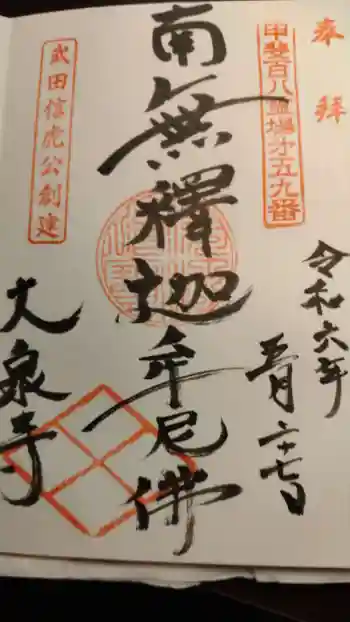 奉拝
甲斐百八霊場第五九番
令和六年
五月二十七日
南無釋迦牟尼佛
武田信虎公創建
大泉寺